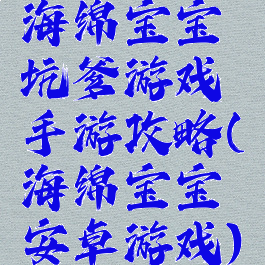 海绵宝宝
坑爹游戏
手游攻略(
海绵宝宝
安卓游戏)